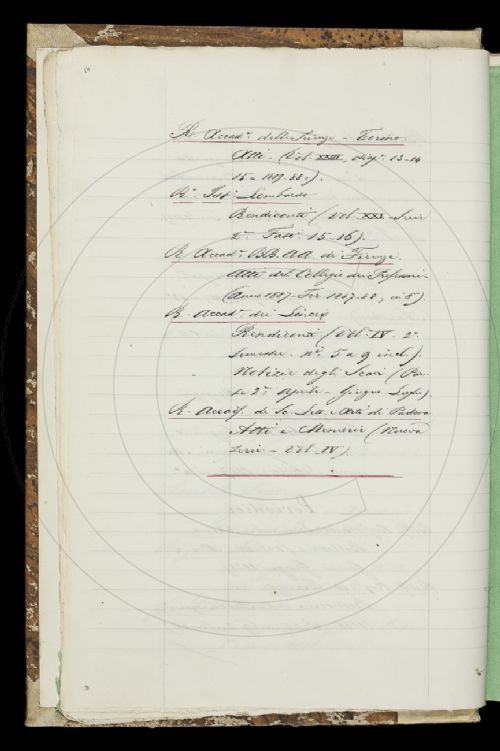 R. Accad.ª delle Scienze - Torino
Atti - (Vol. XXIII, disp.e 13-14
15 a 1887-88.).
R.º Ist.º Lombardo
Rendiconti (Vol. XXI Serie
2.ª Fasc.i 15-16).
R. Accad.ª BB. AA. di Firenze.
Atti del Collegio dei Professori
(Anno 1887-
R. Accad.ª dei Lincei
Rendiconti (Vol. IV. 2.º
Semestre. n.i 5 a 9 incl.).
Notizie degli Scavi (Par-
te 2.ª Aprile - Giugno Luglio).
R. Accad. di Sc. Lett. e Arti di Padova
Atti e Memorie (Nuova
Serie - Vol. IV).